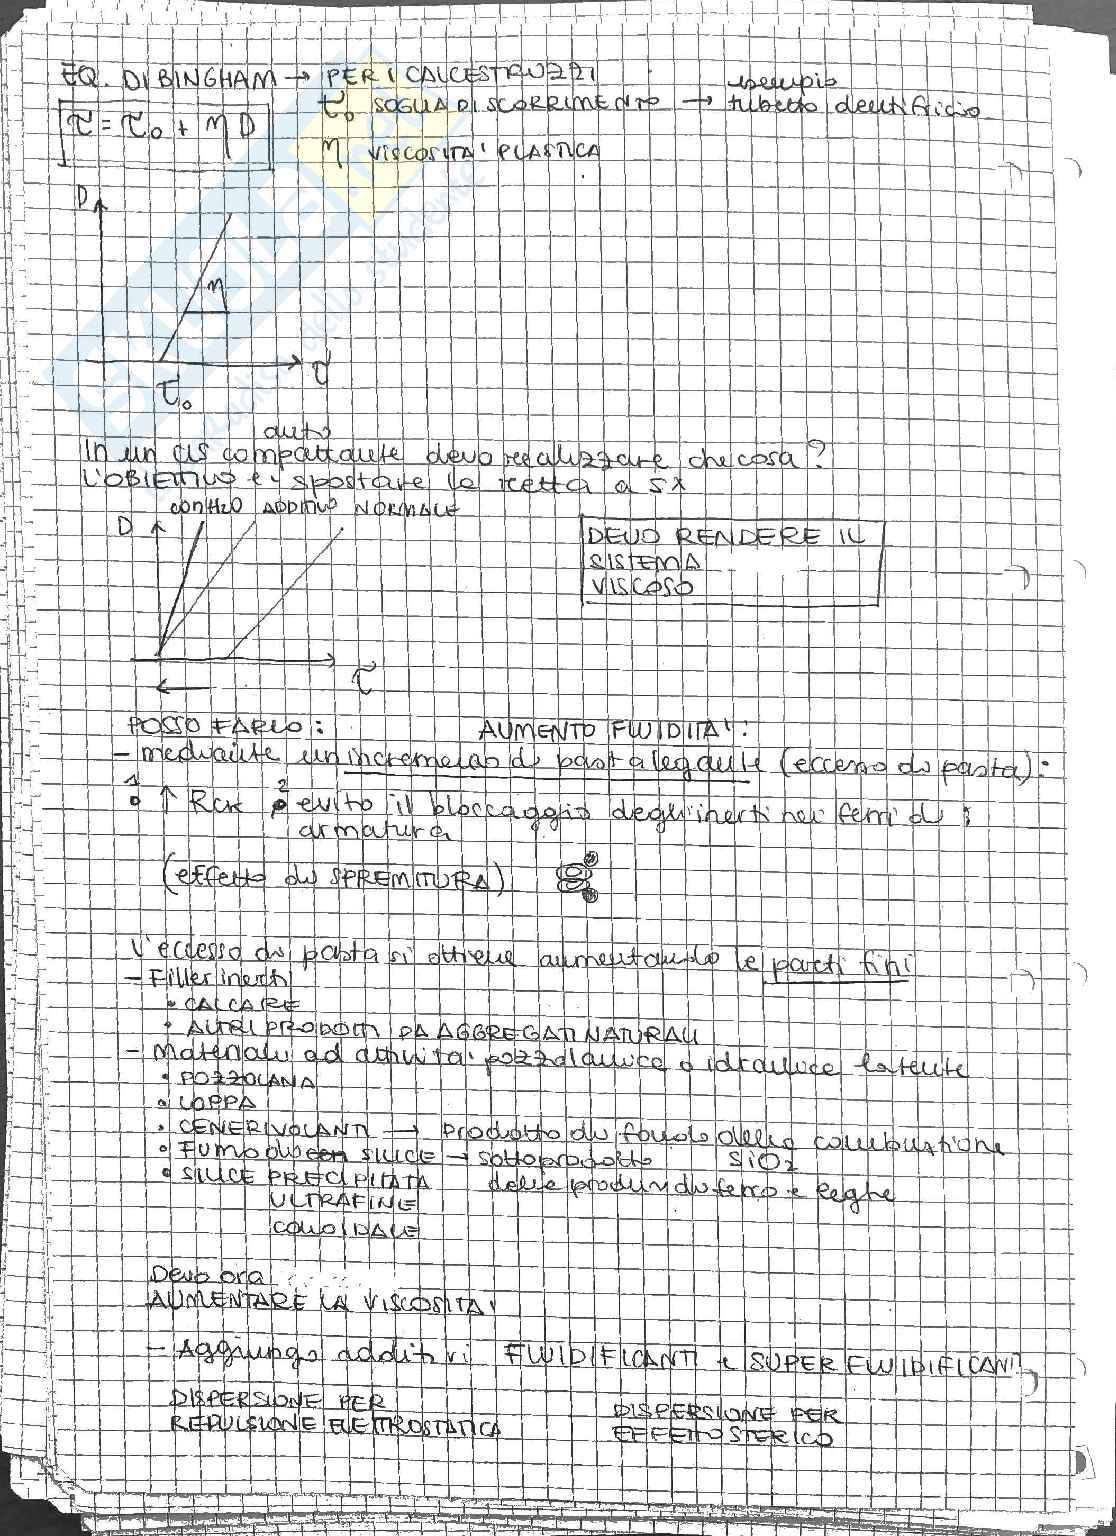 EQ. DI BINGHAM → PER I CALCESTRUZZI
τ = τ₀ + η D
τ₀ SOGLIA DI SCORRIMENTO → esempio tubetto dentifricio
η VISCOSITA' PLASTICA
D
η
τ
τ₀
In un cls auto compattante devo realizzare che cosa?
L'OBIETTIVO e' spostare la retta a sx
con H2O ADDITIVO NORMALE
D
τ
DEVO RENDERE IL
SISTEMA
VISCOSO
POSSO FARLO: AUMENTO FLUIDITA':
- mediante un incremento di pasta legante (eccesso di pasta):
1 • ↑ Rck 2 • evito il bloccaggio degli inerti nei ferri di
armatura
(effetto di SPREMITURA)
L'eccesso di pasta si ottiene aumentando le parti fini
- Filler inerti
• CALCARE
• ALTRI PRODOTTI DA AGGREGATI NATURALI
- Materiali ad attivita' pozzolanica o idraulica latente
• POZZOLANA
• LOPPA
• CENERI VOLANTI → prodotto di fondo della combustione
• FUMO DI SILICE → sottoprodotto SiO2
• SILICE PRECIPITATA delle produz di ferro e leghe
ULTRAFINE
COLLOIDALE
Devo ora
AUMENTARE LA VISCOSITA'
- Aggiungo additivi FLUIDIFICANTI e SUPERFLUIDIFICANTI
DISPERSIONE PER
REPULSIONE ELETTROSTATICA
DISPERSIONE PER
EFFETTO STERICO